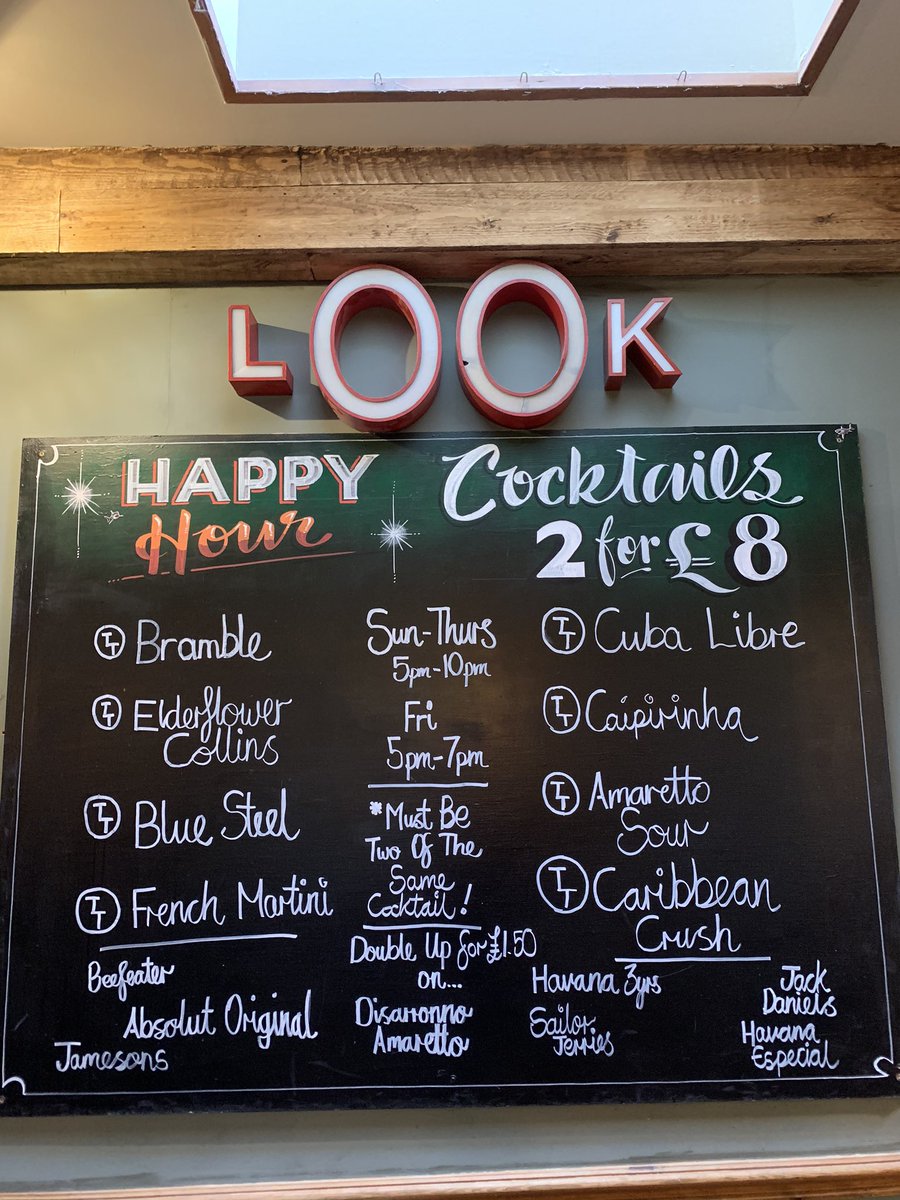 LOOK
HAPPY
Hour
Cocktails
2 for £8
TT Bramble
TT Elderflower
Collins
TT Blue Steel
TT French Martini
Sun-Thurs
5pm-10pm
Fri
5pm-7pm
*Must Be
Two Of The
Same
Cocktail!
TT Cuba Libre
TT Caipirinha
TT Amaretto
Sour
TT Caribbean
Crush
Double Up for £1.50
on...
Beefeater
Absolut Original
Jamesons
Disaronno
Amaretto
Havana 3yrs
Sailor
Jerries
Jack
Daniels
Havana
Especial